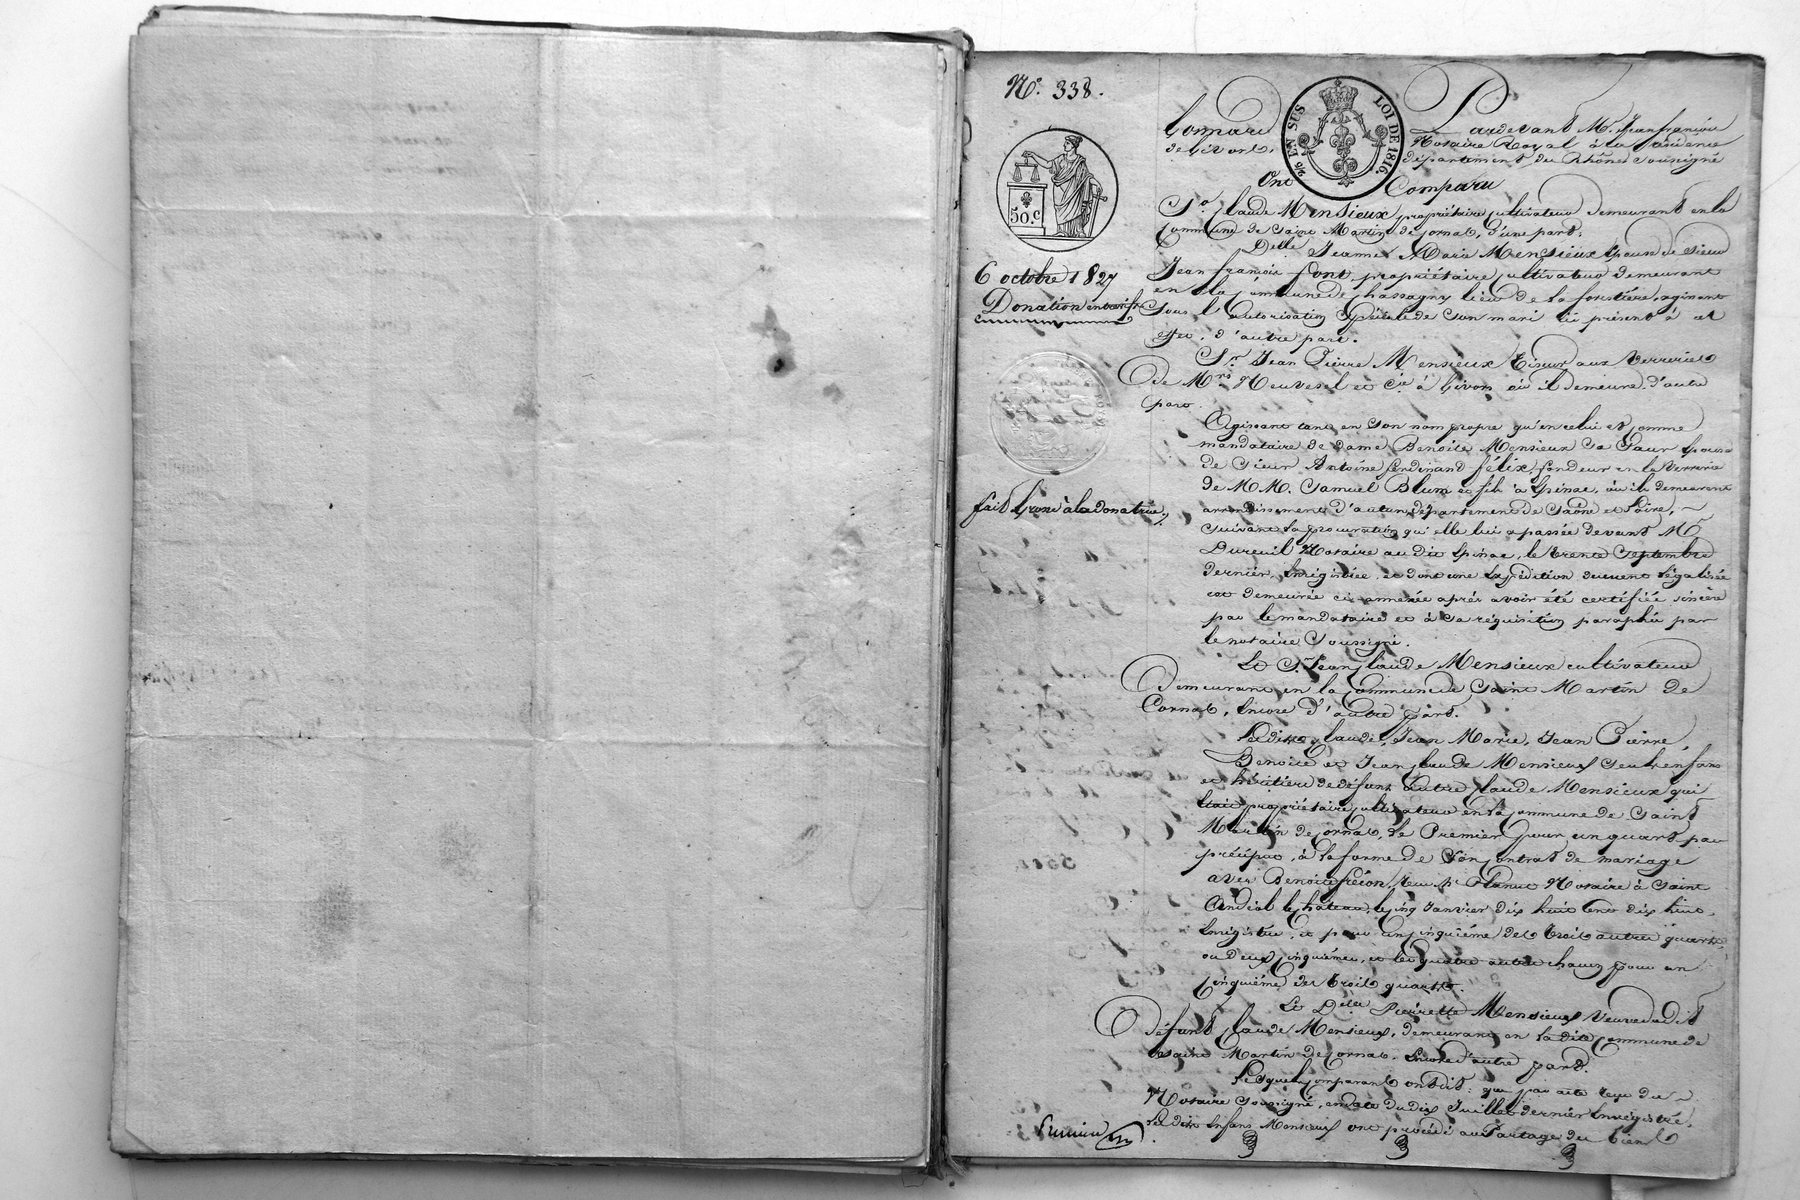 N.° 338.
50.c
6 octobre 1827
Donation entrevifs
fait grosse à la donatrice
2/0 EN SUS
LOI DE 1816.
Pardevant M.e Jean françois
Notaire Royal à la résidence
de Givors, département du Rhône soussigné
Ont Comparu
S.r Claude Mensieux propriétaire cultivateur demeurant en la
Commune de Saint Martin de Cornas, d'une part.
Delle Jeanne Marie Mensieux Epouse de Sieur
Jean françois font propriétaire cultivateur demeurant
en la Commune de Chassagny lieu de la forestière, agissant
sous l'autorisation Spéciale de son mari ici présent à cet
effet, d'autre part.
S.r Jean Pierre Mensieux Tiseur aux Verreries
de M.rs Neuvesel et C.ie à Givors où il demeure, d'autre
part.
Agissant tant en son nom propre qu'en celui et comme
mandataire de dame Benoite Mensieux sa Sœur Epouse
de Sieur Antoine ferdinand félix, fondeur en la Verrerie
de M.M. Samuel Blum et fils à Epinac, où ils demeurent
arrondissement d'autun, département de Saône et Loire,
suivant la procuration qu'elle lui a passée devant M.e
Dureuil Notaire au dit Epinac, le trente Septembre
dernier, Enregistrée, et dont une Expédition duement légalisée
est demeurée ci-annexée après avoir été certifiée sincère
par le mandataire et à sa réquisition paraphée par
le notaire soussigné.
Le S.r Jean Claude Mensieux cultivateur
Demeurant en la Commune de Saint Martin de
Cornas, Encore d'autre part.
Lesdits Claude, Jean Marie, Jean Pierre,
Benoite et Jean Claude Mensieux seuls enfans
et héritiers de défunt autre Claude Mensieux qui
était propriétaire cultivateur en la Commune de Saint
Martin de Cornas, le Premier pour un quart par
préciput, à la forme de son Contrat de mariage
avec Benoite fréon, reçu M.e Notaire à Saint
Andéol le Château, le cinq Janvier dix huit cent dix huit,
Enregistré, et pour un cinquième des trois autres quarts
ou deux cinquièmes, et les quatre autres chacun pour un
cinquième des trois quarts.
Et D.elle Pierrette Mensieux Veuve du dit
Défunt Claude Mensieux, demeurant en la dite Commune de
Saint Martin de Cornas, Encore d'autre part.
Lesquels Comparans ont dit: que par acte reçu du
Notaire Soussigné, en date du dix Juillet dernier Enregistré,
les dits Enfans Mensieux ont procédé au Partage des biens
Premier